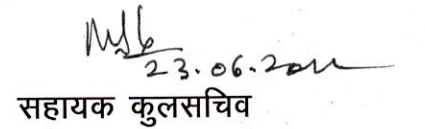 23.06.20
सहायक कुलसचिव